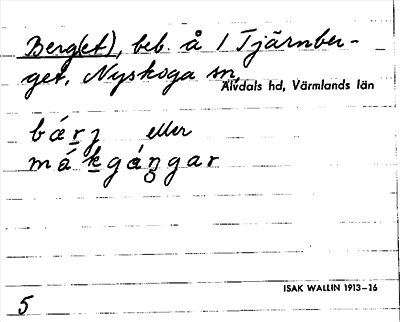 Berg(et), beb. å 1 Tjärnber-
get, Nyskoga sn,
Älvdals hd, Värmlands län
bárj eller
mákgángar
ISAK WALLIN 1913–16
5